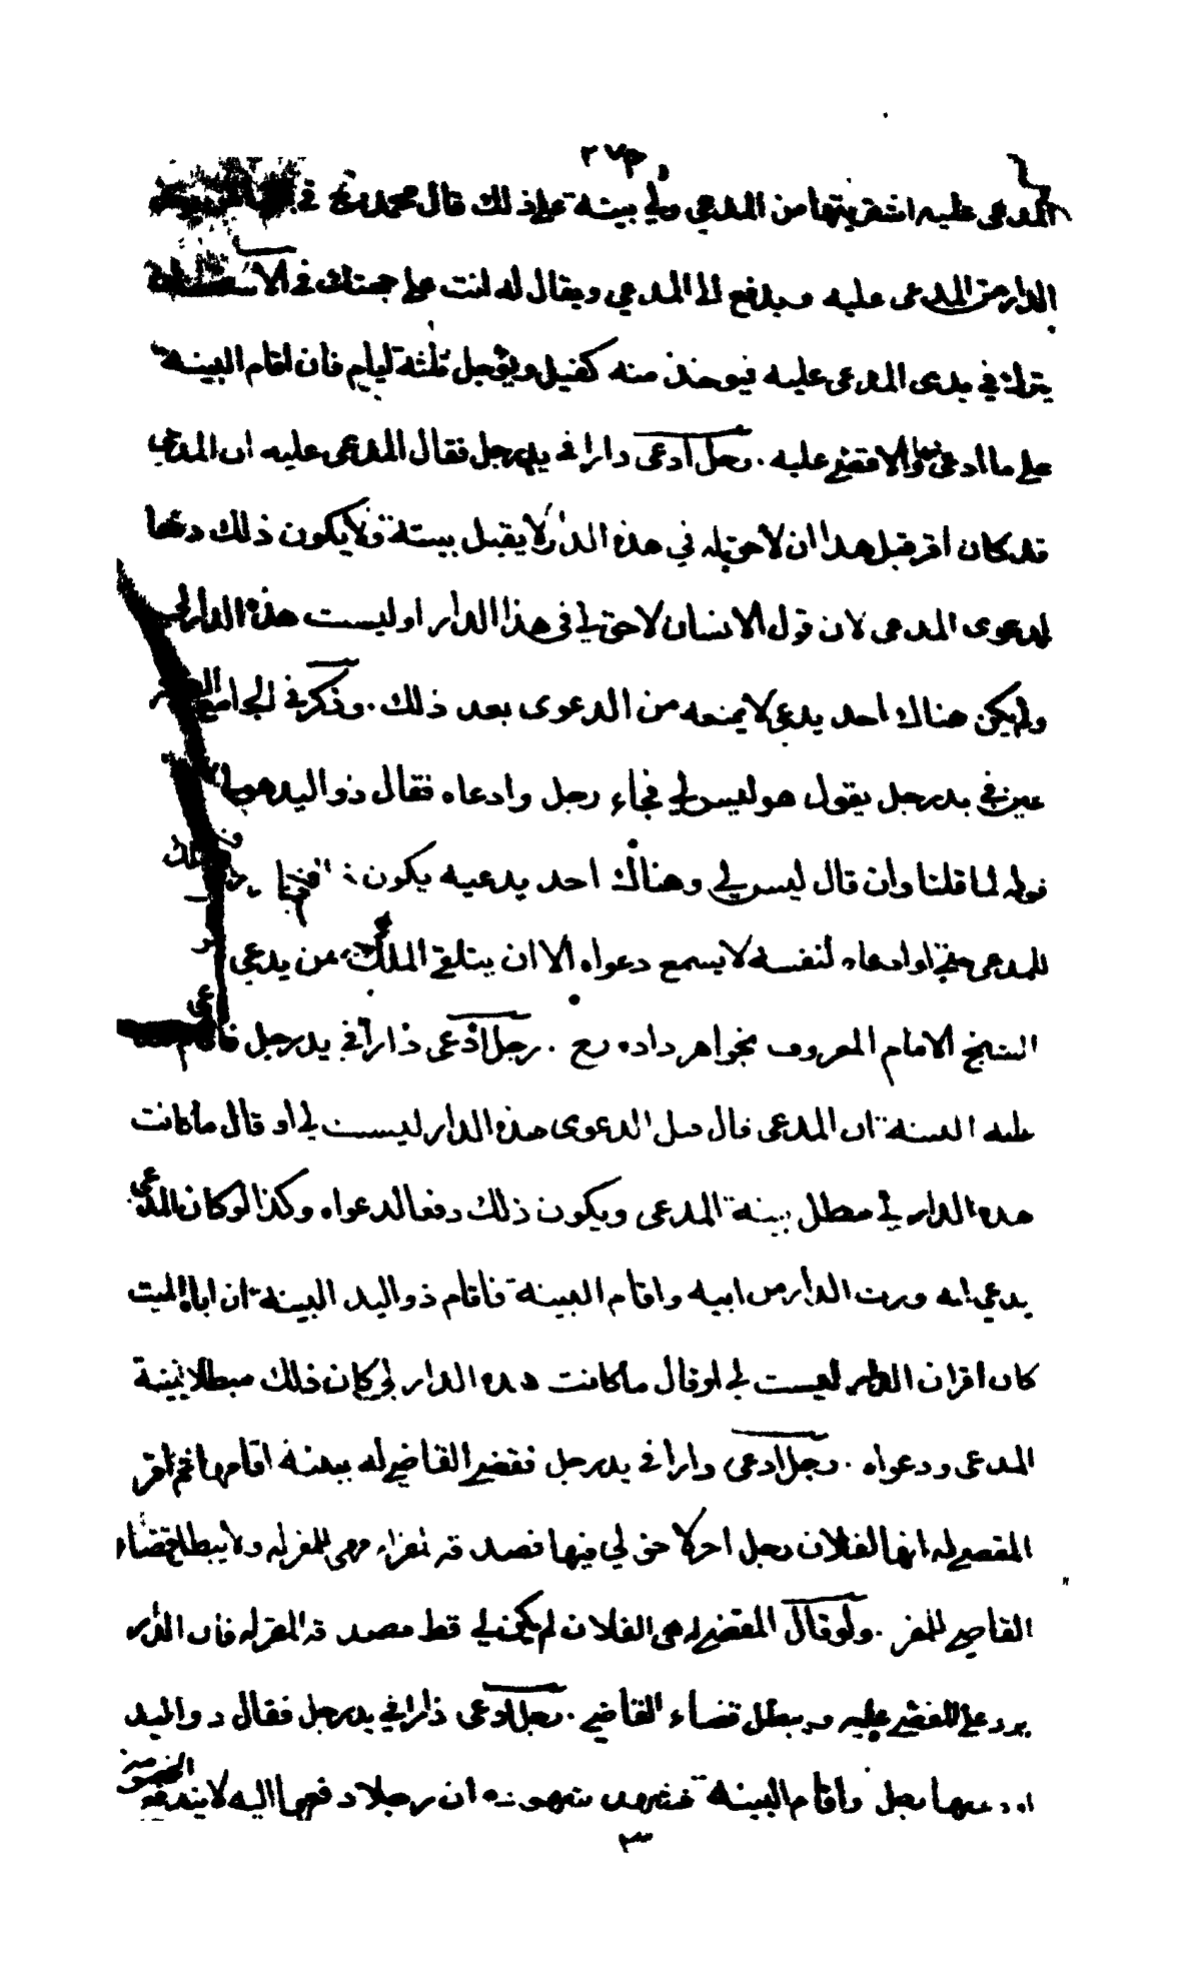 المدعى عليه اشتريتها من المدعي ولي بينة على ذلك قال محمد رح في
الدار من المدعى عليه ويدفع الى المدعي ويقال له انت على حجتك في الاستحسان
يترك في يدي المدعى عليه فيوخذ منه كفيل ويؤجل ثلثة ايام فان اقام البينة
على ما ادعى والا قضى عليه . رجل ادعى دارا في يد رجل فقال المدعى عليه ان المدعي
قد كان اقر قبل هذا ان لا حق له في هذه الدار لا يقبل بينته ولا يكون ذلك دفعا
لدعوى المدعي لان قول الانسان لا حق لي في هذا الدار او ليست هذه الدار لي
ولم يكن هناك احد يدعي لا يمنعه من الدعوى بعد ذلك . وذكر في الجامع
عين في يد رجل يقول هو ليس لي فجاء رجل وادعاه فقال ذو اليد هو لي
قوله لما قلنا وان قال ليس لي وهناك احد يدعيه يكون
للمدعى حتى لو ادعاه لنفسه لا يسمع دعواه الا ان يتلقى الملك من يدعي
الشيخ الامام المعروف بخواهر زاده رح . رجل ادعى دارا في يد رجل فاقام
عليه البينة ان المدعى قال قبل الدعوى هذه الدار ليست لي او قال ما كانت
هذه الدار لي بطل بينة المدعى ويكون ذلك دفعا لدعواه وكذا لو كان المدعي
يدعي انه ورث الدار من ابيه واقام البينة فاقام ذو اليد البينة ان اباه الميت
كان اقر ان الدار ليست لي او قال ما كانت هذه الدار لي كان ذلك مبطلا لبينة
المدعى ودعواه . رجل ادعى دارا في يد رجل فقضى القاضي له ببينة اقامها ثم اقر
المقضي له انها لفلان رجل اخر لا حق لي فيها فصدقه المقر له فهي للمقر له ولا يبطل قضاء
القاضي للمقر . ولو قال المقضي له هي لفلان لم يكن لي قط فصدقه المقر له فان الدار
يرد على المقضى عليه ويبطل قضاء القاضي . رجل ادعى دارا في يد رجل فقال ذو اليد
رجل واقام البينة ان رجلا دفعها اليه لا يندفع